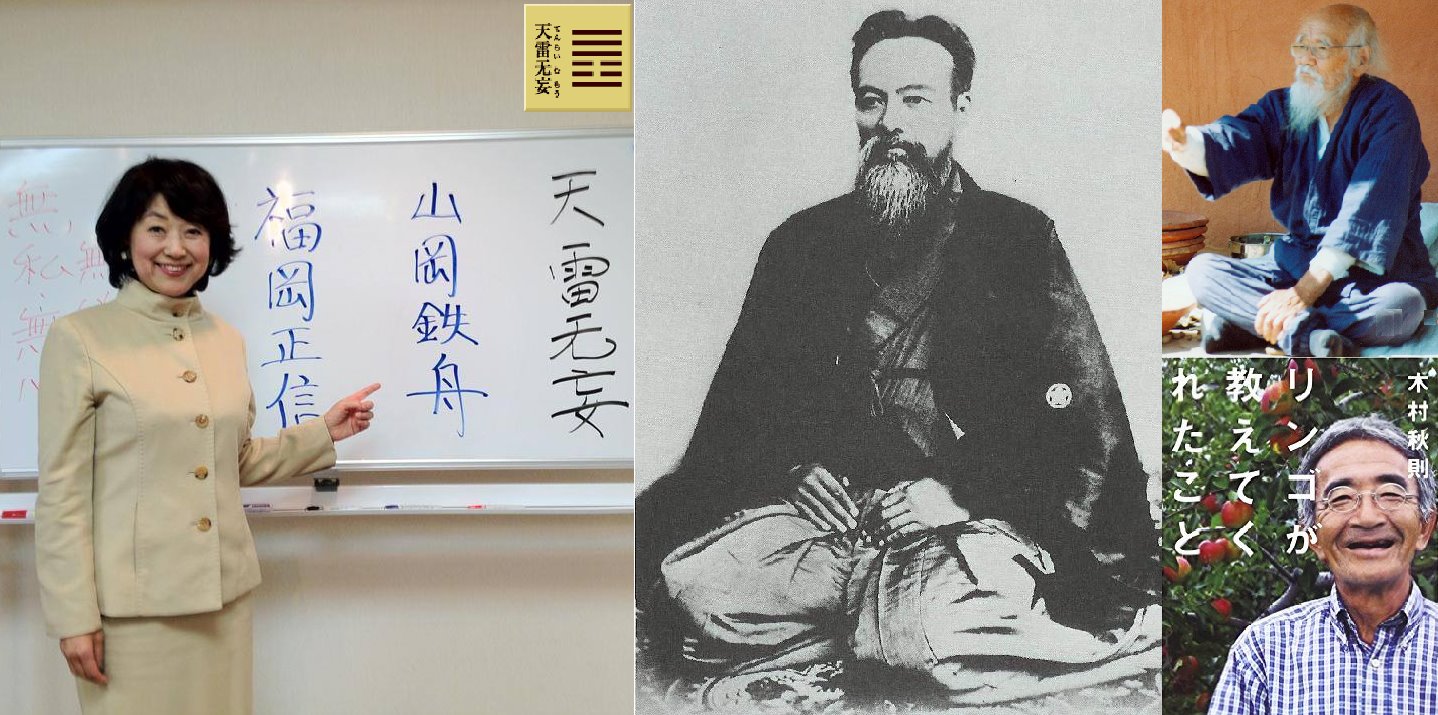 天雷无妄
てんらいむもう
天雷无妄
山岡鉄舟
福岡正信
無
無私
木村秋則
リンゴが
教えてく
れたこと